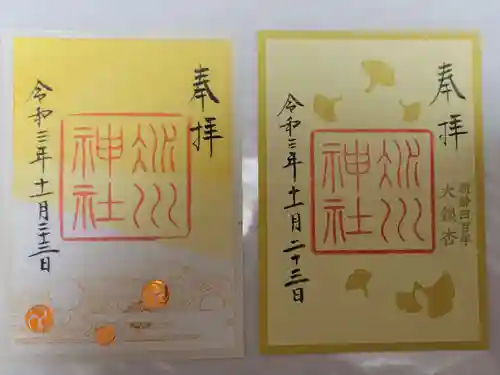 奉拝
氷川
神社
令和三年十一月二十三日
奉拝
樹齢四百年
大銀杏
氷川
神社
令和三年十一月二十三日